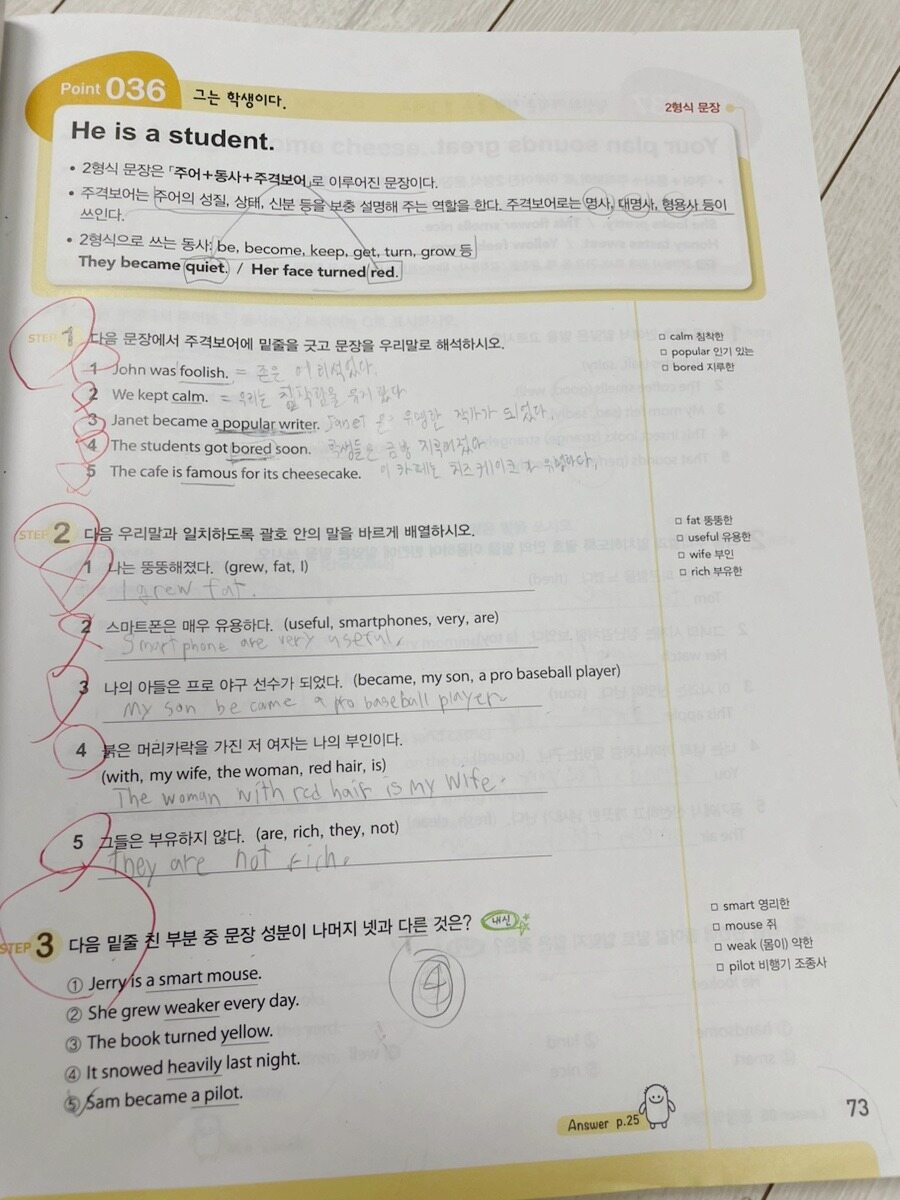 Point 036 그는 학생이다.
2형식 문장
He is a student.
• 2형식 문장은 「주어+동사+주격보어」로 이루어진 문장이다.
• 주격보어는 주어의 성질, 상태, 신분 등을 보충 설명해 주는 역할을 한다. 주격보어로는 명사, 대명사, 형용사 등이
쓰인다.
• 2형식으로 쓰는 동사: be, become, keep, get, turn, grow 등
They became quiet. / Her face turned red.
STEP 1 다음 문장에서 주격보어에 밑줄을 긋고 문장을 우리말로 해석하시오.
1 John was foolish. = 존은 어리석었다.
2 We kept calm. = 우리는 침착함을
3 Janet became a popular writer. Janet 은 유명한 작가가 되었다
4 The students got bored soon. 학생들은 금방 지루어졌다
5 The cafe is famous for its cheesecake. 이 카페는 치즈케이크로 유명하다.
□ calm 침착한
□ popular 인기 있는
□ bored 지루한
STEP 2 다음 우리말과 일치하도록 괄호 안의 말을 바르게 배열하시오.
1 나는 뚱뚱해졌다. (grew, fat, I)
I grew fat.
2 스마트폰은 매우 유용하다. (useful, smartphones, very, are)
Smartphone are very useful.
3 나의 아들은 프로 야구 선수가 되었다. (became, my son, a pro baseball player)
My son be came a pro baseball player
4 붉은 머리카락을 가진 저 여자는 나의 부인이다.
(with, my wife, the woman, red hair, is)
The woman with red hair is my wife.
5 그들은 부유하지 않다. (are, rich, they, not)
They are not rich.
□ fat 뚱뚱한
□ useful 유용한
□ wife 부인
□ rich 부유한
STEP 3 다음 밑줄 친 부분 중 문장 성분이 나머지 넷과 다른 것은? 내신
④
① Jerry is a smart mouse.
② She grew weaker every day.
③ The book turned yellow.
④ It snowed heavily last night.
⑤ Sam became a pilot.
□ smart 영리한
□ mouse 쥐
□ weak (몸이) 약한
□ pilot 비행기 조종사
Answer p.25
73